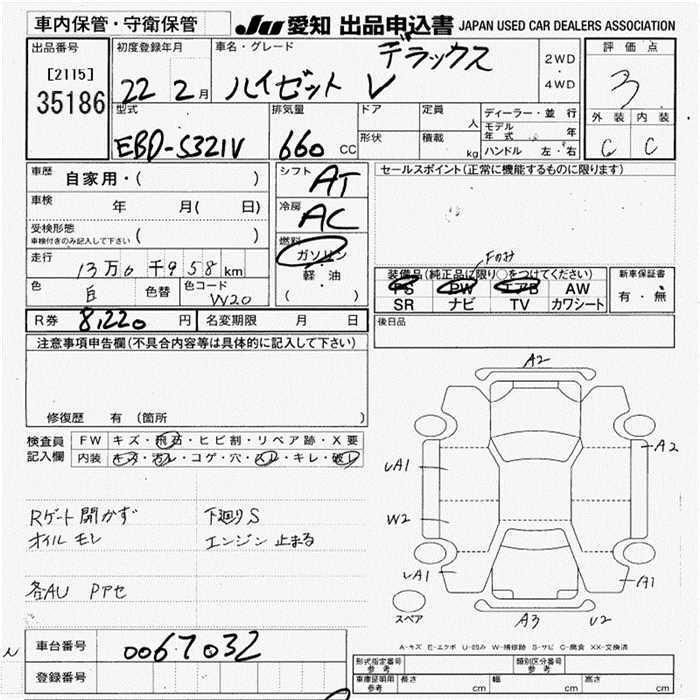 車内保管・守衛保管 JU 愛知 出品申込書 JAPAN USED CAR DEALERS ASSOCIATION
出品番号 初度登録年月 車名・グレード デラックス 2WD・4WD 評価点
[2115]
35186 22 2月 ハイゼット V 3
型式 排気量 ドア 定員 人 ディーラー・並行 外装 内装
モデル年式 年
EBD-S321V 660 CC 形状 積載 kg ハンドル 左・右 C C
車歴 自家用・( ) シフト AT セールスポイント(正常に機能するものに限ります)
車検 年 月( 日) 冷房 AC
受検形態 ( )
車検付きのみ記入して下さい
燃料 ガソリン・軽・油 ( )
走行 13万6千958km
Fのみ
装備品(純正品に限り○をつけてください) 新車保証書
色 白 色替 色コード W20
PS PW エアB AW 有・無
SR ナビ TV カワシート
R券 8,220円 名変期限 月 日 後日品
注意事項申告欄(不具合内容等は具体的に記入して下さい)
修復歴 有(箇所 )
検査員記入欄 FW キズ・飛石・ヒビ割・リペア跡・X要
内装 キズ・汚レ・コゲ・穴・スレ・キレ・破レ
Rゲート開かず 下廻りS
オイルモレ エンジン止まる
各AU Pアセ
A2
A2
UA1
W2
UA1
A1
スペア
A3 U2
A-キズ E-エクボ U-凹み W-補修跡 S-サビ C-腐食 XX-交換済
車台番号 0067032
登録番号
型式指定番号 参考 類別区分番号 参考
車庫証明用 参考 長さ cm 幅 cm 高さ cm